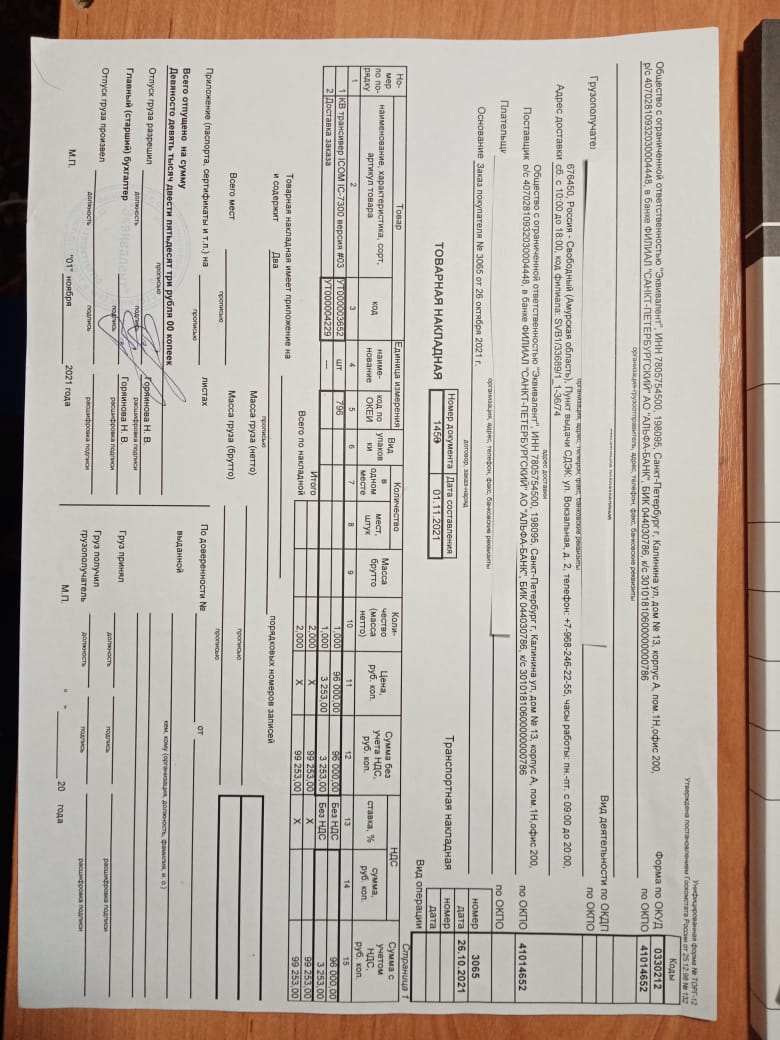 Унифицированная форма № ТОРГ-12
Утверждена постановлением Госкомстата России от 25.12.98 № 132
Коды
Форма по ОКУД 0330212
Общество с ограниченной ответственностью "Эквивалент", ИНН 7805754500, 198095, Санкт-Петербург г, Калинина ул, дом № 13, корпус А, пом.1Н,офис 200,
р/с 40702810932030004448, в банке ФИЛИАЛ "САНКТ-ПЕТЕРБУРГСКИЙ" АО "АЛЬФА-БАНК", БИК 044030786, к/с 30101810600000000786
по ОКПО 41014652
организация-грузоотправитель, адрес, телефон, факс, банковские реквизиты
Вид деятельности по ОКДП
Грузополучате
по ОКПО
организация, адрес, телефон, факс, банковские реквизиты
676450, Россия - Свободный (Амурская область), Пункт выдачи СДЭК: ул. Вокзальная, д. 2, телефон: +7-968-246-22-55, часы работы: пн.-пт. с 09:00 до 20:00,
Адрес доставки сб. с 10:00 до 18:00, код филиала: SVB1/33689/1_1-36/74
адрес доставки
Общество с ограниченной ответственностью "Эквивалент", ИНН 7805754500, 198095, Санкт-Петербург г, Калинина ул, дом № 13, корпус А, пом.1Н,офис 200,
Поставщик р/с 40702810932030004448, в банке ФИЛИАЛ "САНКТ-ПЕТЕРБУРГСКИЙ" АО "АЛЬФА-БАНК", БИК 044030786, к/с 30101810600000000786
по ОКПО 41014652
Плательщи
по ОКПО
организация, адрес, телефон, факс, банковские реквизиты
Основание Заказ покупателя № 3065 от 26 октября 2021 г.
номер 3065
договор, заказ-наряд
дата 26.10.2021
Номер документа Дата составления
Транспортная накладная номер
ТОВАРНАЯ НАКЛАДНАЯ 1459 01.11.2021
дата
Вид операции
Страница 1
Но-мер по по-рядку
Товар
наименование, характеристика, сорт, артикул товара
код
Единица измерения
наиме-нование
код по ОКЕИ
Вид упаков ки
Количество
в одном месте
мест, штук
Масса брутто
Коли-чество (масса нетто)
Цена, руб. коп.
Сумма без учета НДС, руб. коп.
НДС
ставка, %
сумма, руб. коп.
Сумма с учетом НДС, руб. коп.
1 2 3 4 5 6 7 8 9 10 11 12 13 14 15
1 КВ трансивер ICOM IC-7300 версия #03 УТ000003652 шт 796 1,000 96 000,00 96 000,00 Без НДС 96 000,00
2 Доставка заказа УТ000004229 — 1,000 3 253,00 3 253,00 Без НДС 3 253,00
Итого 2,000 X 99 253,00 X 99 253,00
Всего по накладной 2,000 X 99 253,00 X 99 253,00
Товарная накладная имеет приложение на
и содержит Два порядковых номеров записей
прописью
Масса груза (нетто)
прописью
Всего мест Масса груза (брутто)
прописью
прописью
Приложение (паспорта, сертификаты и т.п.) на листах
прописью
По доверенности № от
Всего отпущено на сумму
Девяносто девять тысяч двести пятьдесят три рубля 00 копеек
прописью
выданной
кем, кому (организация, должность, фамилия, и. о.)
Отпуск груза разрешил Горяинова Н. В.
должность подпись расшифровка подписи
Главный (старший) бухгалтер Горяинова Н. В.
подпись расшифровка подписи
Груз принял
должность подпись расшифровка подписи
Отпуск груза произвел
должность подпись расшифровка подписи
Груз получил
грузополучатель
должность подпись расшифровка подписи
М.П. "01" ноября 2021 года
М.П. " " 20 года